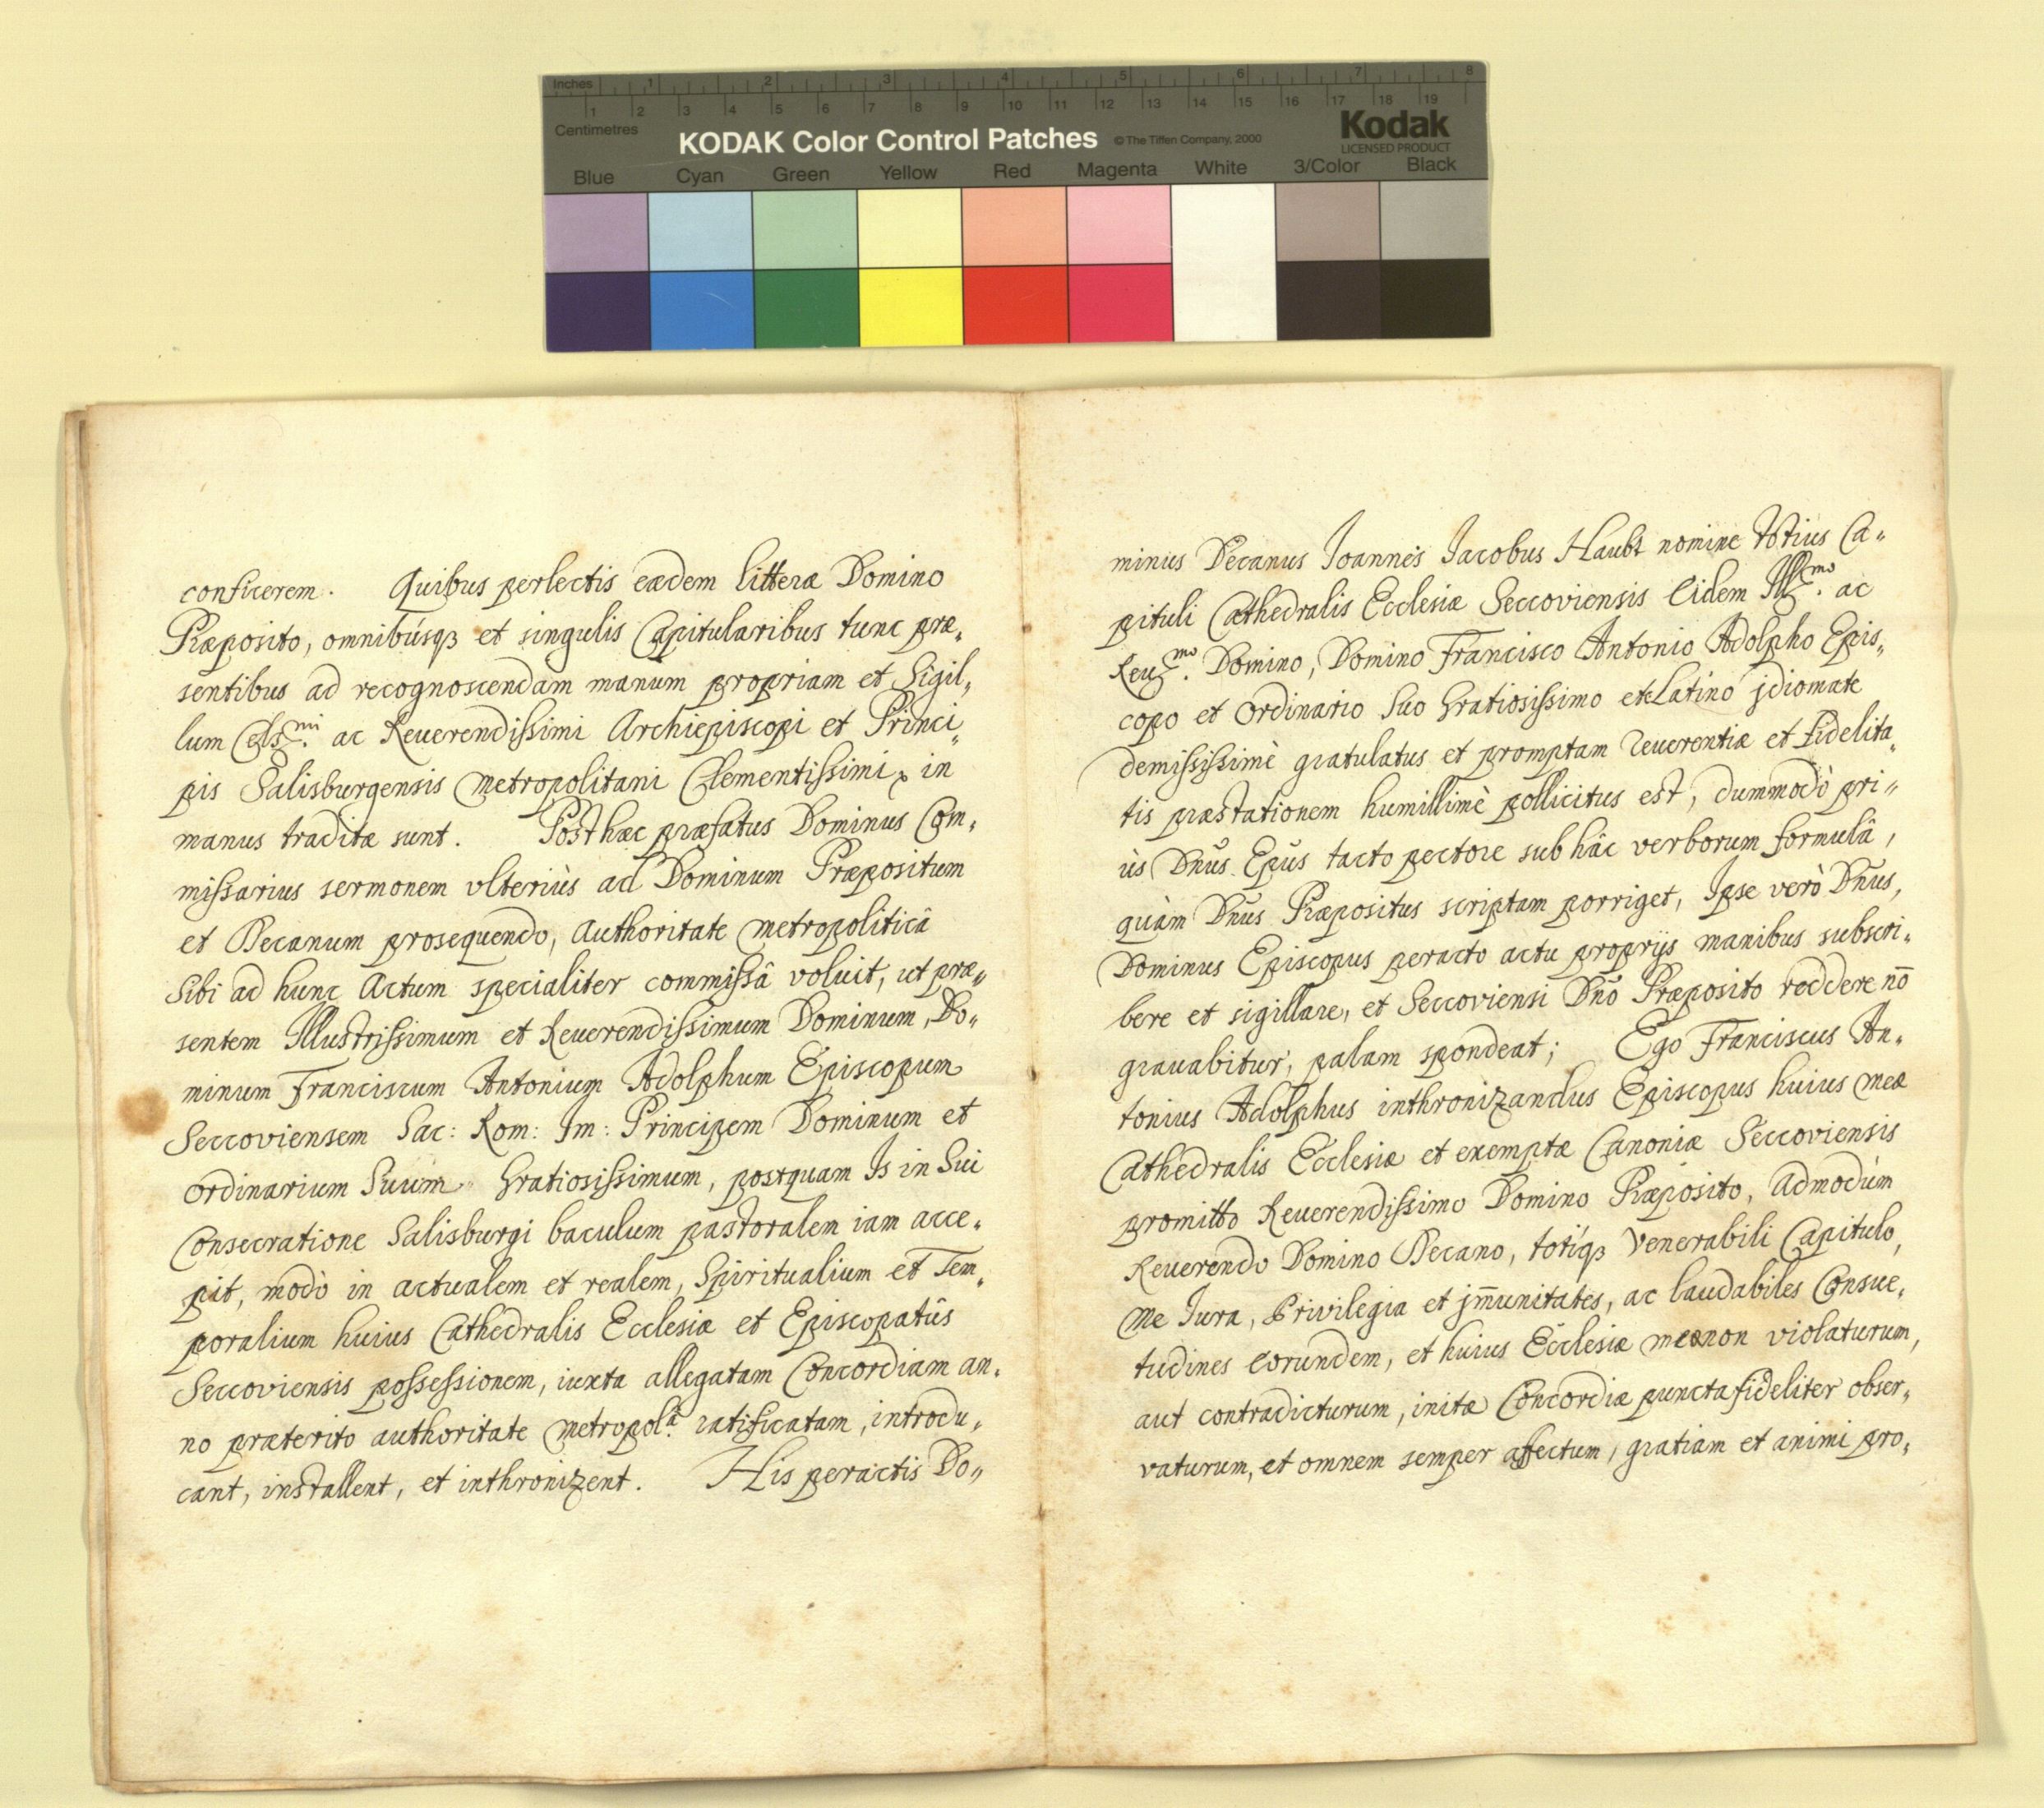 Inches 1 2 3 4 5 6 7 8
1 2 3 4 5 6 7 8 9 10 11 12 13 14 15 16 17 18 19
Centimetres
KODAK Color Control Patches © The Tiffen Company, 2000 Kodak
LICENSED PRODUCT
Blue Cyan Green Yellow Red Magenta White 3/Color Black
conficerem. Quibus perlectis eædem litteræ Domino
Præposito, omnibúsqꝫ et singulis Capitularibus tunc præ„
sentibus ad recognoscendam manum propriam et Sigil„
lum Cels.mi ac Reuerendissimi Archiepiscopi et Princi„
pis Salisburgensis Metropolitani Clementissimi, in
manus traditæ sunt. Post hæc præfatus Dominus Com„
missarius sermonem vlteriùs ad Dominum Præpositum
et Decanum prosequendo, Authoritate Metropoliticâ
Sibi ad hunc Actum specialiter commissâ voluit, ut præ„
sentem Illustrissimum et Reuerendissimum Dominum, Do„
minum Franciscum Antonium Adolphum Episcopum
Seccoviensem Sac: Rom: Im: Principem Dominum et
Ordinarium Suum Gratiosissimum, postquam Is in Sui
Consecratione Salisburgi baculum pastoralem iam acce„
pit, modò in actualem et realem, Spiritualium et Tem„
poralium huius Cathedralis Ecclesiæ et Episcopatûs
Seccoviensis possessionem, iuxta allegatam Concordiam an„
no præterito authoritate Metropol.â ratificatam, introdu„
cant, installent, et inthronizent. His peractis Do„
minus Decanus Joannes Jacobus Haubt nomine totius Ca„
pituli Cathedralis Ecclesiæ Seccoviensis Eidem Ill.mo ac
Reu.mo Domino, Domino Francisco Antonio Adolpho Epis„
copo et Ordinario Suo Gratiosissimo Latino jdiomate
demississimè gratulatus et promptam reuerentiæ et fidelita„
tis præstationem humillimè pollicitus est, dummodò pri„
ùs Dn̄us Ep̄us tacto pectore sub hâc verborum formulâ,
quàm Dn̄us Præpositus scriptam porriget, Ipse verò Dn̄us,
Dominus Episcopus peracto actu proprijs manibus subscri„
bere et sigillare, et Seccoviensi Dn̄o Præposito reddere nō
grauabitur, palam spondeat; Ego Franciscus An„
tonius Adolphus inthronizandus Episcopus huius meæ
Cathedralis Ecclesiæ et exemptæ Canoniæ Seccoviensis
promitto Reuerendissimo Domino Præposito, Admodùm
Reuerendo Domino Decano, totíqꝫ Venerabili Capitulo,
Me Jura, Privilegia et jm̄unitates, ac laudabiles Consue„
tudines eorundem, et huius Ecclesiæ meæ non violaturum,
aut contradicturum, initæ Concordiæ puncta fideliter obser„
vaturum, et omnem semper affectum, gratiam et animi pro„